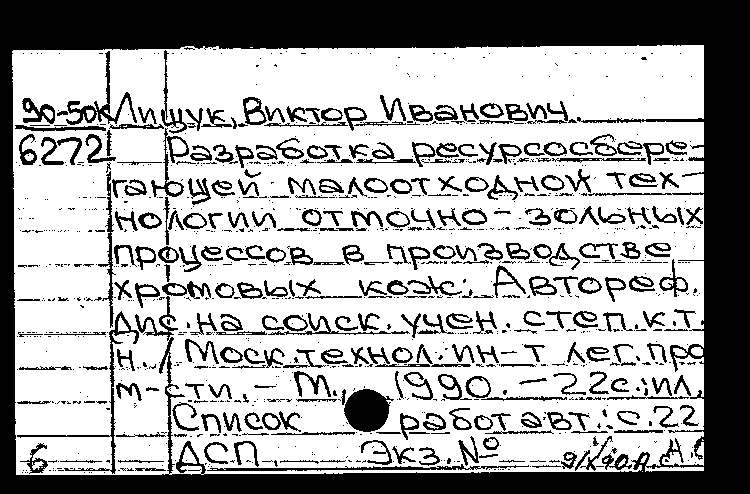 90-50к Лищук, Виктор Иванович.
6272 Разработка ресурсосбере-
гающей малоотходной тех-
нологии отмочно-зольных
процессов в производстве
хромовых кож: Автореф.
дис. на соиск. учен. степ. к.т.
н. / Моск. технол. ин-т лег. про
м-сти. - М., 1990. - 22с.: ил.
Список работ авт.: с.22
6 ДСП. Экз. №